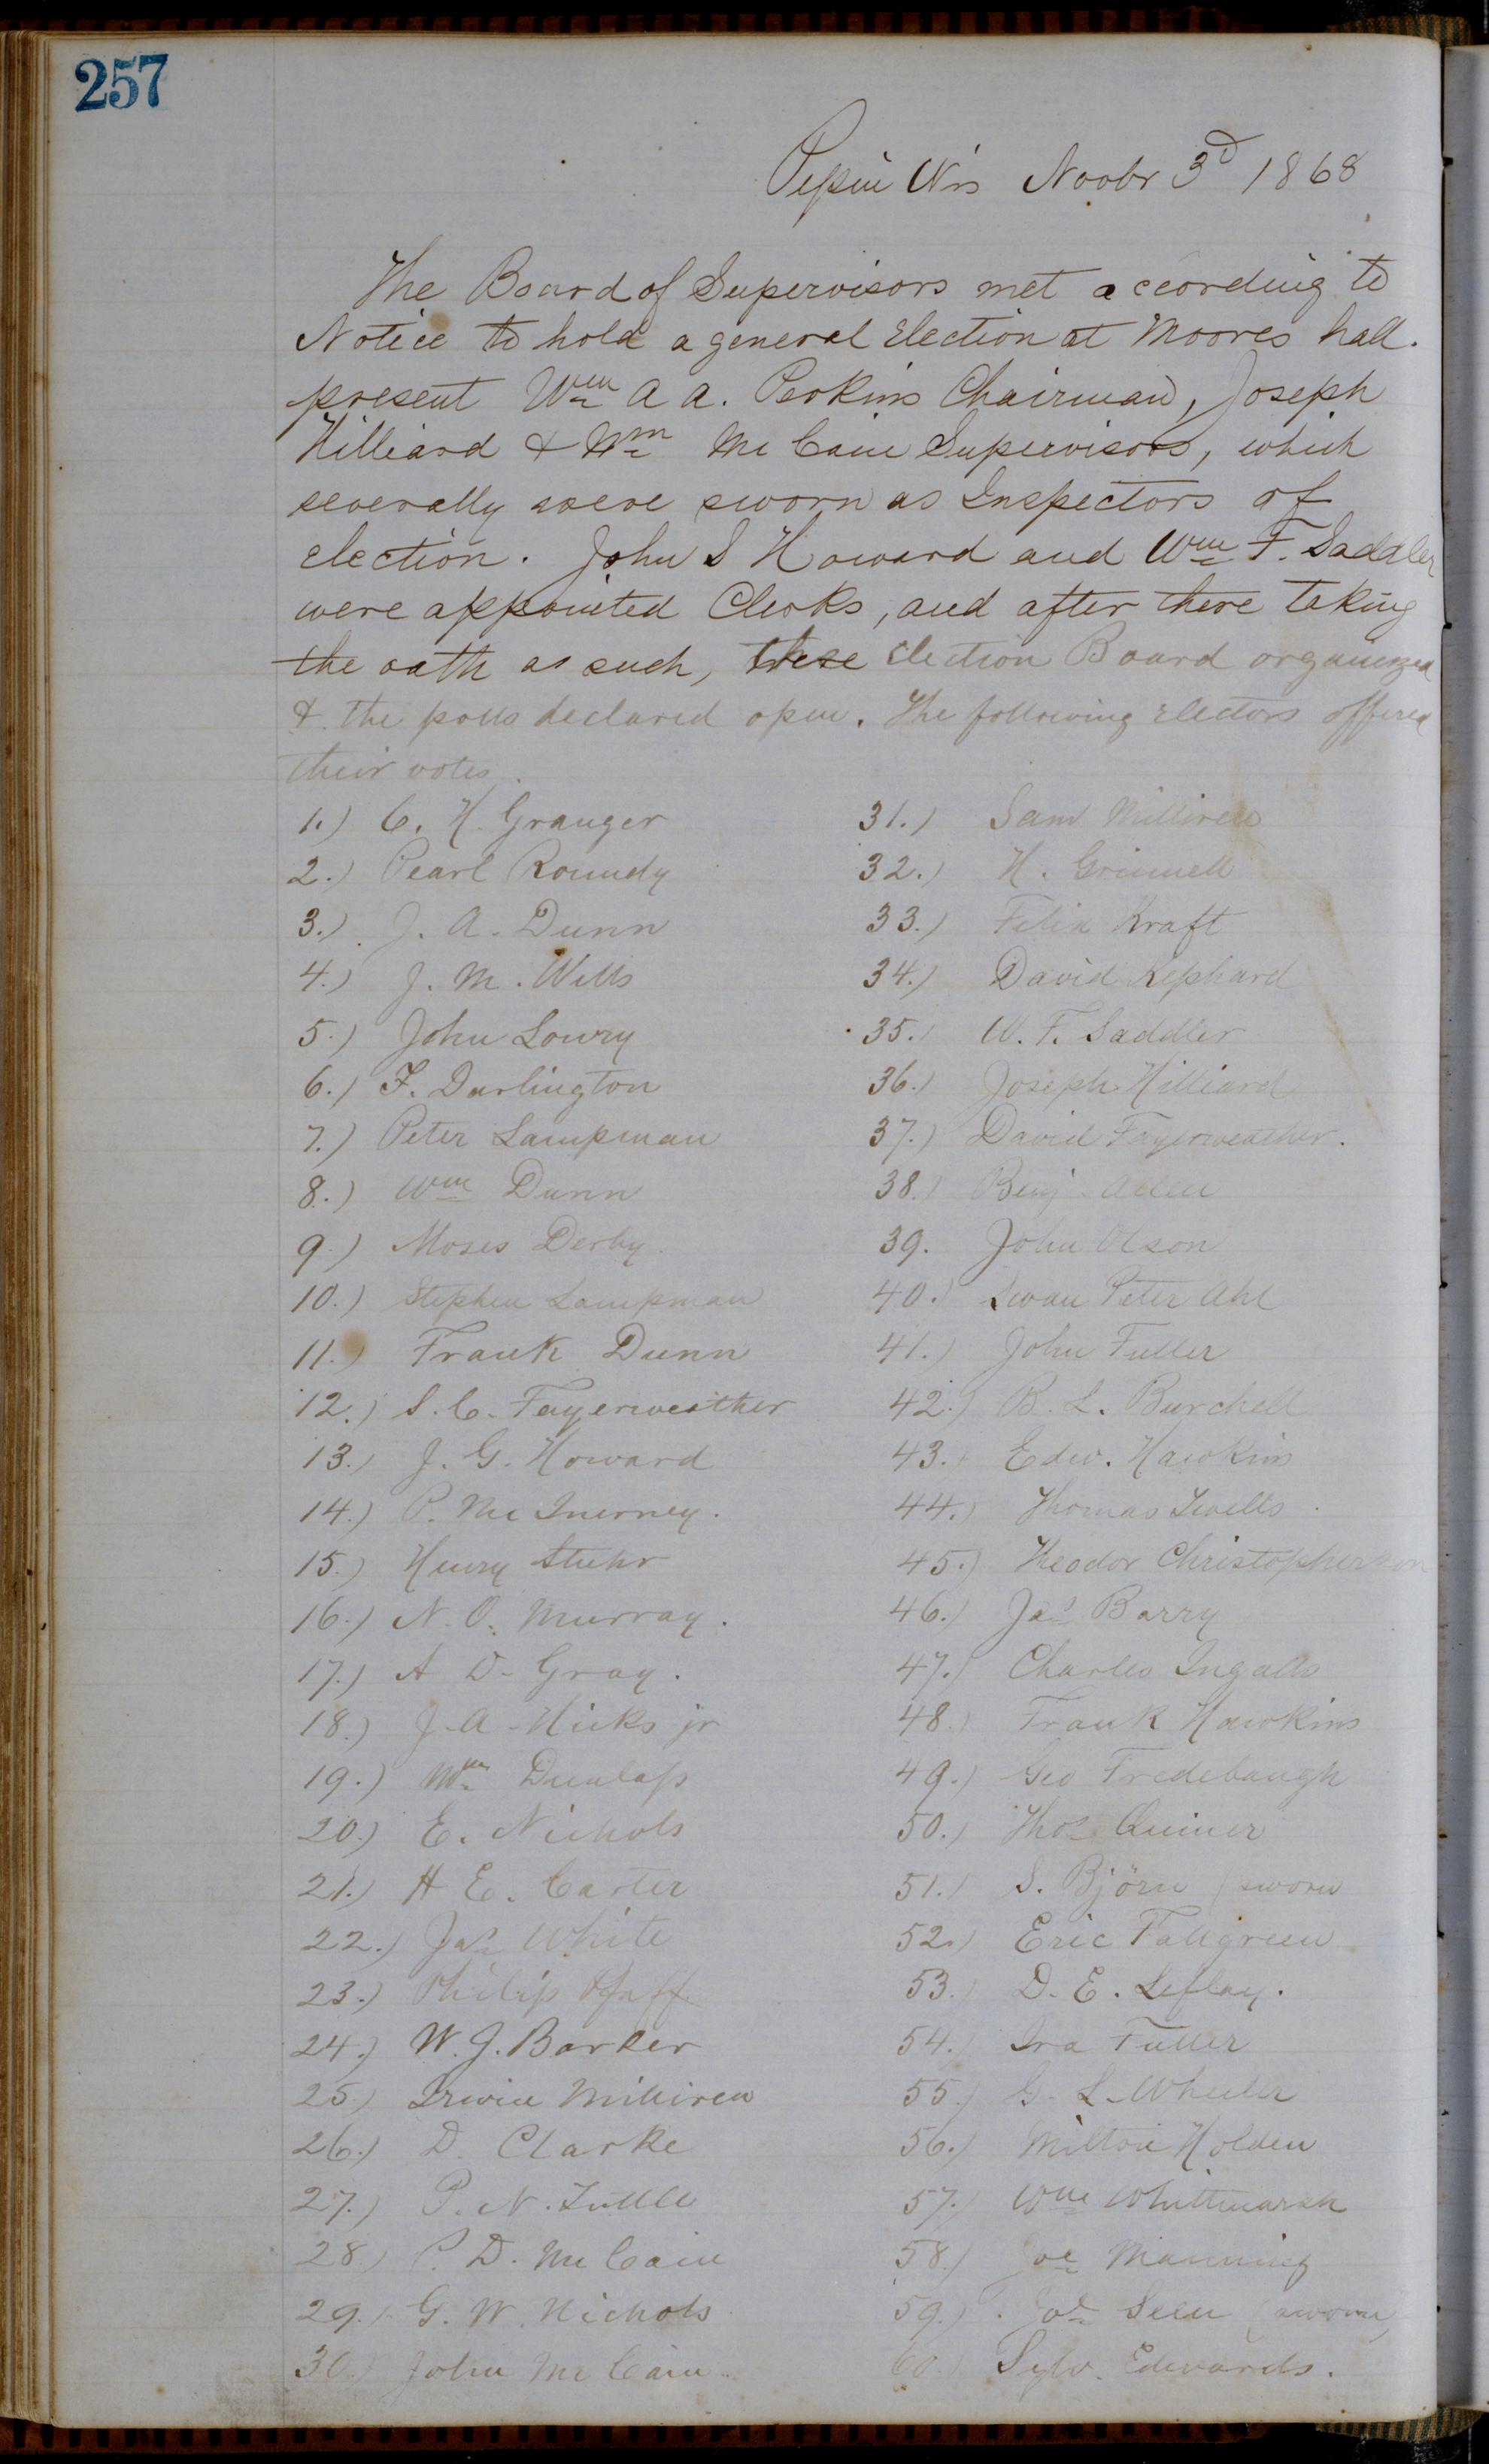 257
Pepin Wis Novbr 3d 1868
The Board of Supervisors met according to
Notice to hold a general Election at Moores hall.
present Wm A A. Perkins Chairman, Joseph
Hilliard & Wm Mc Cain Supervisors, which
severally were sworn as Inspectors of
election. John S Howard and Wm F. Saddler
were appointed Clerks, and after there taking
the oath as such, these Election Board organized
& the polls declared open. The following Electors offered
their votes.
1.) C. H. Granger
2.) Pearl Roundy
3.) J. A. Dunn
4.) J. M. Wills
5.) John Lowry
6.) F. Darlington
7.) Peter Lampman
8.) Wm Dunn
9.) Moses Derby
10.) Stephen Lampman
11.) Frank Dunn
12.) S. C. Fayerweather
13.) J. G. Howard
14.) P. Mc Inerney.
15.) Henry Stuhr
16.) N. O. Murray.
17.) A D. Gray.
18.) J. A. Hicks jr
19.) Wm Dunlap
20.) E. Nichols
21.) H E. Carter
22.) Jas White
23.) Philip Pfaff
24.) W. J. Barker
25.) Irwin Milliren
26.) D. Clarke
27.) P. N. Tuttle
28.) P. D. Mc Cain
29.) G. W. Nichols
30.) John Mc Cain
31.) Saml Milliren
32.) H. Grinnell
33.) Felix Kraft
34.) David Kephard
35.) W. F. Saddler
36.) Joseph Hilliard
37.) David Fayerweather.
38.) Benj. Allen
39. John Olson
40.) Swan Peter Ahl
41.) John Fuller
42.) B. L. Burchell
43.) Edw. Hawkins
44.) Thomas
45.) Theodor Christopherson
46.) Jas Barry
47.) Charles Ingalls
48.) Frank Hawkins
49.) Geo Fredebaugh
50.) Thos Quiner
51.) S. Björn (sworn
52.) Eric Fallgreen
53.) D. E. Leflay.
54.) Ira Fuller
55.) G. L. Wheeler
56.) Milton Holden
57.) Wm Whittmarsh
58.) Manning
59.) (sworn)
60.) Sylv. Edwards.